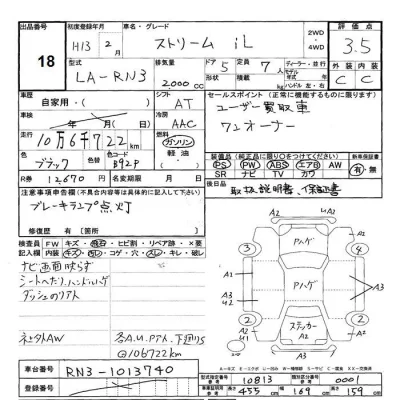 出品番号 初度登録年月 車名・グレード 2WD 評価点
18 H13 2月 ストリーム iL ・4WD 3.5
型式 排気量 ドア 定員 ディーラー・並行 外装 内装
LA-RN3 2000cc 5 7人 モデル年式 積載量 kg ハンドル 左・右 C C
車歴 自家用・ シフト AT セールスポイント(正常に機能するものに限る)
車検 年 月( 日) 冷房 AAC ユーザー買取車
走行 10万6千722km 燃料 ガソリン ワンオーナー
色 ブラック 色替 色コード B92P 軽油・
R券 12670 名変期限 月 日
装備品(純正品に限り○をつけてください) 新車保証書
PS PW ABS エアB AW 有・無
SR ナビ TV カワ
注意事項申告欄(不具合内容は具体的に記入して下さい) 後日品 取扱説明書、保証書
ブレーキランプ点灯
修復歴 有[箇所 ]
検査員 FW キズ・飛石・ヒビ割・リペア跡・×要
記入欄 内装 キズ・コゲ・穴・スレ・キレ・破レ
ナビ画面映らず
シートヘたり、ハンドルハゲ
ダッシュのリアト
社外AW 各A.U.Pアト、下廻りS
@106722km
Pハゲ
Pハゲ
ステッカー
A2
4
4
2
2
A1
A3
42
A1
A2
A3
A2
A2
41
車台番号 RN3-1013740
登録番号
型式指定番号 10813 類別区分番号 0001
長さ 455cm 幅 169cm 高さ 159cm